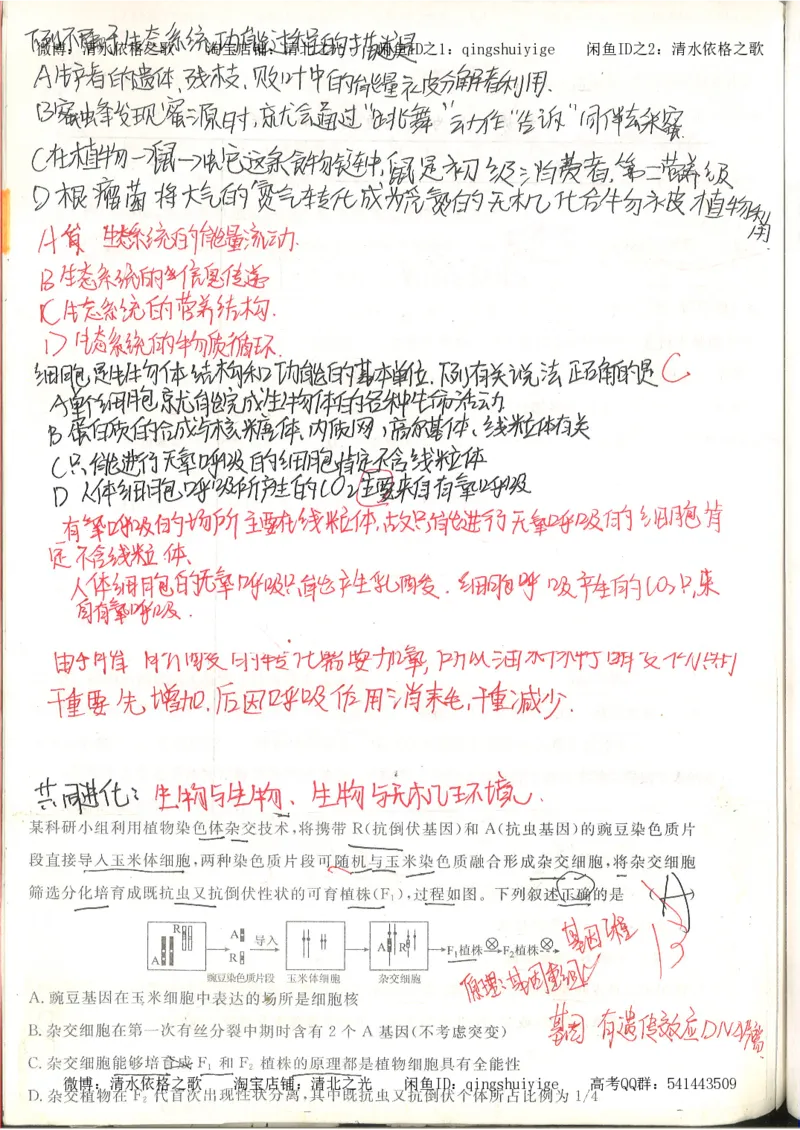 下列不属于生态系统功能过程的描述是
微博：清水依格之歌 淘宝店铺：清北之光 闲鱼ID之1：qingshuiyige 闲鱼ID之2：清水依格之歌
A生产者的遗体、残枝、败叶中的能量被分解者利用.
B蜜蜂发现蜜源时,就会通过“跳舞”动作“告诉”同伴去采蜜
C在植物→鼠→蛇这条食物链中,鼠是初级消费者,第二营养级
D根瘤菌将大气的氮气转化成为含氮的无机化合物被植物利用
A算 生态系统的能量流动.
B生态系统的信息传递
C生态系统的营养结构.
D生态系统的物质循环.
细胞是生物体结构和功能的基本单位.下列有关说法正确的是 C
A单个细胞就能完成生物体的各种生命活动
B蛋白质的合成与核糖体、内质网,高尔基体、线粒体有关
C只能进行无氧呼吸的细胞肯定不含线粒体
D人体细胞呼吸所产生的CO2主要来自有氧呼吸
有氧呼吸的场所主要在线粒体,故只能进行无氧呼吸的细胞肯
定不含线粒体.
人体细胞的无氧呼吸只能产生乳酸. 细胞呼吸产生的CO2只来
自有氧呼吸.
干重要先增加.后因呼吸作用消耗,干重减少.
共同进化：生物与生物、生物与无机环境.
某科研小组利用植物染色体杂交技术,将携带 R(抗倒伏基因)和 A(抗虫基因)的豌豆染色质片
段直接导入玉米体细胞,两种染色质片段可随机与玉米染色质融合形成杂交细胞,将杂交细胞
筛选分化培育成既抗虫又抗倒伏性状的可育植株(F₁),过程如图。下列叙述正确的是 (A)
B
R A A R 导入 A R F₁植株⊗F₂植株⊗ 基因工程
豌豆染色质片段 玉米体细胞 杂交细胞
原理：基因重组
A. 豌豆基因在玉米细胞中表达的场所是细胞核
B. 杂交细胞在第一次有丝分裂中期时含有 2 个 A 基因(不考虑突变)
基因 有遗传效应DNA片段
C. 杂交细胞能够培育成 F₁ 和 F₂ 植株的原理都是植物细胞具有全能性
微博：清水依格之歌 淘宝店铺：清北之光 闲鱼ID：qingshuiyige 高考QQ群：541443509
D. 杂交植物在 F₂ 代首次出现性状分离,其中既抗虫又抗倒伏个体所占比例为 1/4